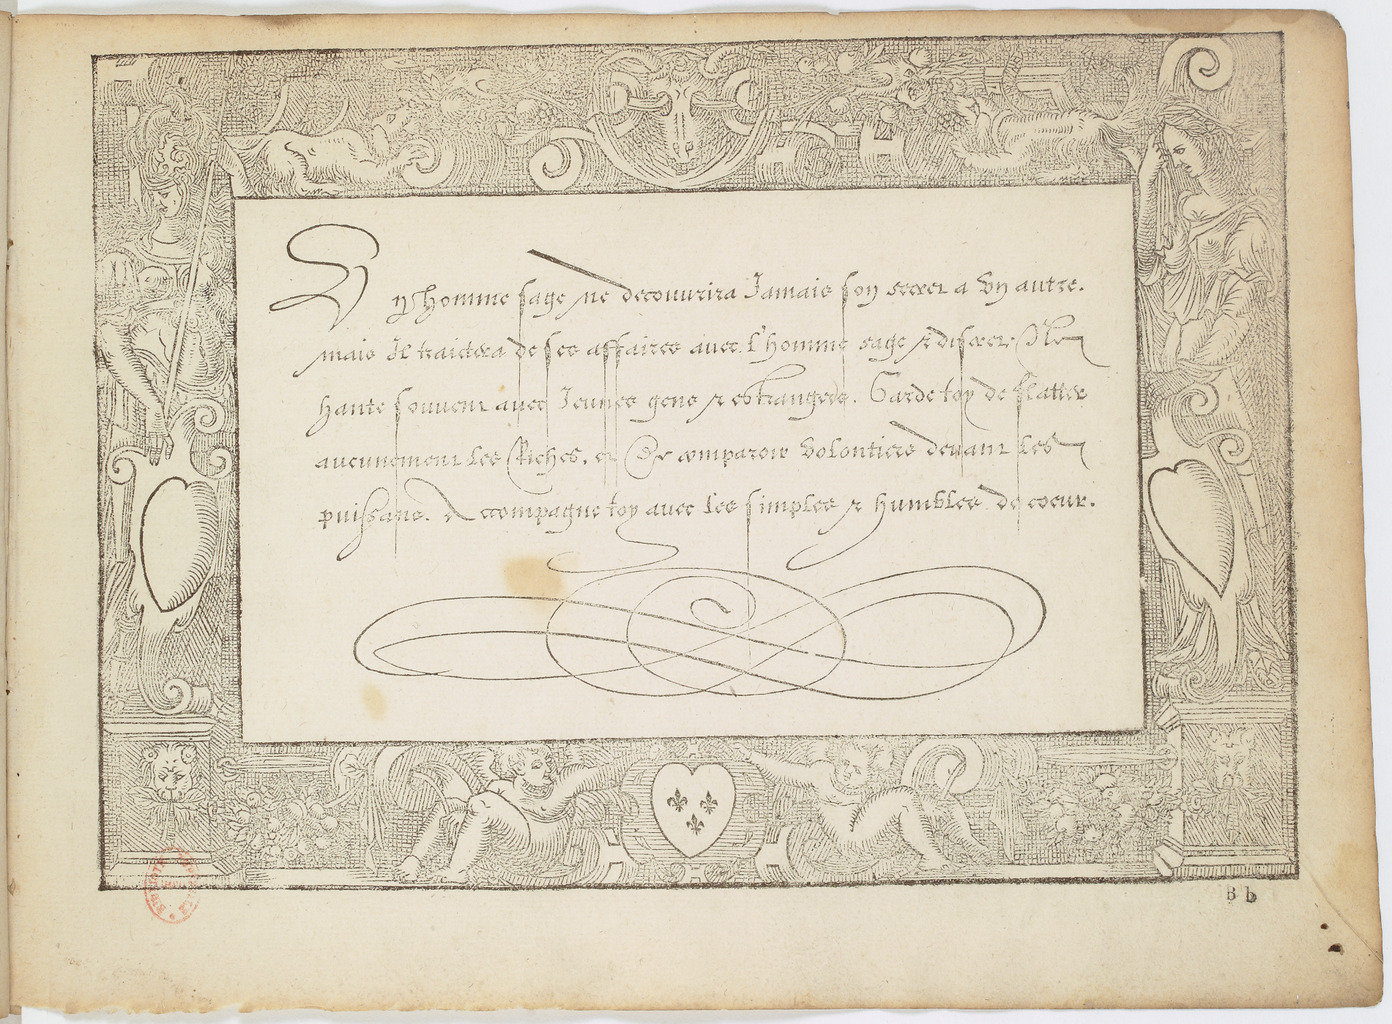 Un homme sage ne decouurira Jamais son secret a vn autre.
mais Il traictera de ses affaires auec l'homme sage & discret. Ne
hante souuent auec Jeunes gens & estrangers. Garde toy de flatter
aucunement les Riches, et De comparoir volontiers deuant les
puissans. Accompagne toy auec les simples & humbles de coeur.
B b